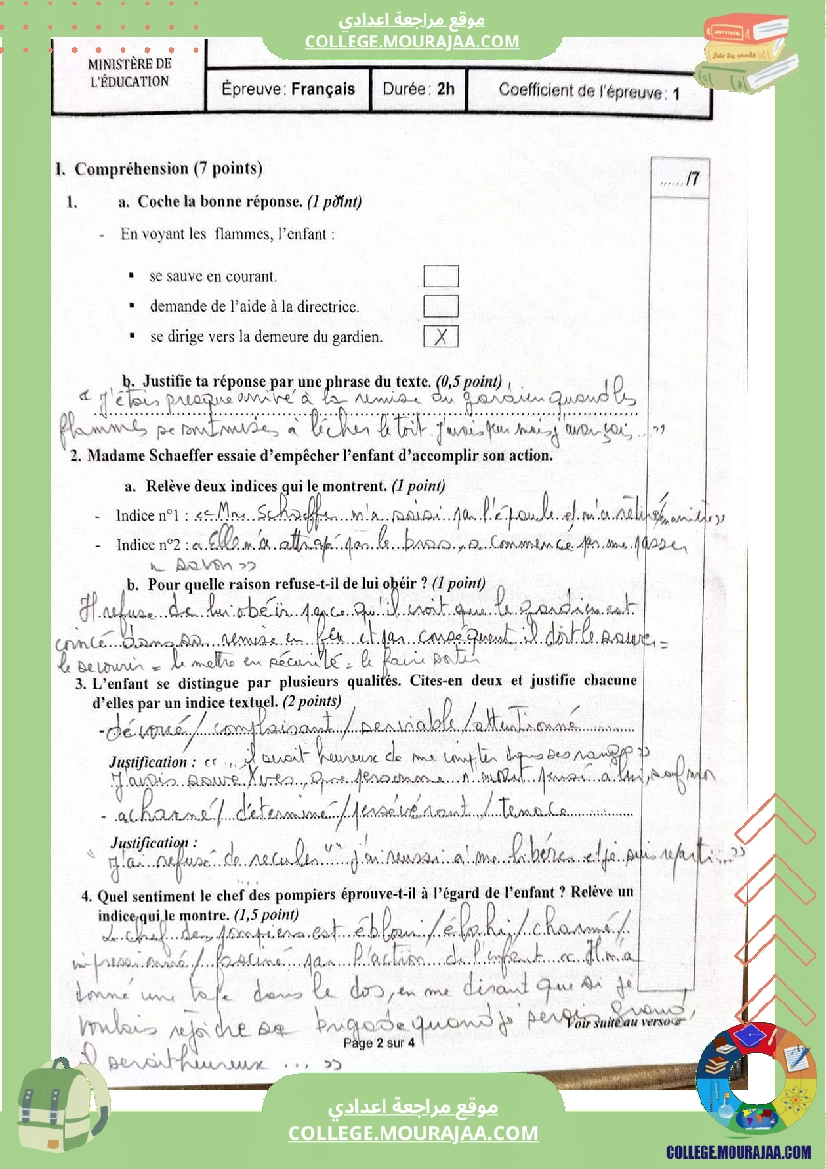 موقع مراجعة اعدادي
COLLEGE.MOURAJAA.COM
MINISTÈRE DE
L'ÉDUCATION
Épreuve: Français
Durée: 2h
Coefficient de l'épreuve: 1
I. Compréhension (7 points)
....../7
1. a. Coche la bonne réponse. (1 point)
- En voyant les flammes, l'enfant :
▪ se sauve en courant.
▪ demande de l'aide à la directrice.
▪ se dirige vers la demeure du gardien. X
b. Justifie ta réponse par une phrase du texte. (0,5 point)
« J'étais presque arrivé à la remise du gardien quand les
flammes se sont mises à lécher le toit. J'avais peur mais j'avançais... »
2. Madame Schaeffer essaie d'empêcher l'enfant d'accomplir son action.
a. Relève deux indices qui le montrent. (1 point)
- Indice n°1 : « Mme Schaeffer m'a saisi par l'épaule et m'a
- Indice n°2 : « Elle m'a attrapé par le bras, a commencé par me passer
un savon »
b. Pour quelle raison refuse-t-il de lui obéir ? (1 point)
Il refuse de lui obéir parce qu'il croit que le gardien est
coincé dans sa remise en feu et par conséquent il doit le sauver =
le secourir = le mettre en sécurité = le faire sortir
3. L'enfant se distingue par plusieurs qualités. Cites-en deux et justifie chacune
d'elles par un indice textuel. (2 points)
- dévoué / complaisant / serviable / attentionné
Justification : « ... il serait heureux de me compter dans ses rangs »
J'avais sauvé Yves, que personne n'avait pensé à lui, sauf moi
- acharné / déterminé / persévérant / tenace
Justification :
" J'ai refusé de reculer " " j'ai réussi à me libérer et je suis reparti... »
4. Quel sentiment le chef des pompiers éprouve-t-il à l'égard de l'enfant ? Relève un
indice qui le montre. (1,5 point)
Le chef des pompiers est ébloui / ébahi / charmé /
impressionné / fasciné par l'action de l'enfant « Il m'a
donné une tape dans le dos, en me disant que si je
voulais rejoindre sa brigade quand je serais grand,
Voir suite au verso
Page 2 sur 4
il serait heureux ... »
موقع مراجعة اعدادي
COLLEGE.MOURAJAA.COM
COLLEGE.MOURAJAA.COM